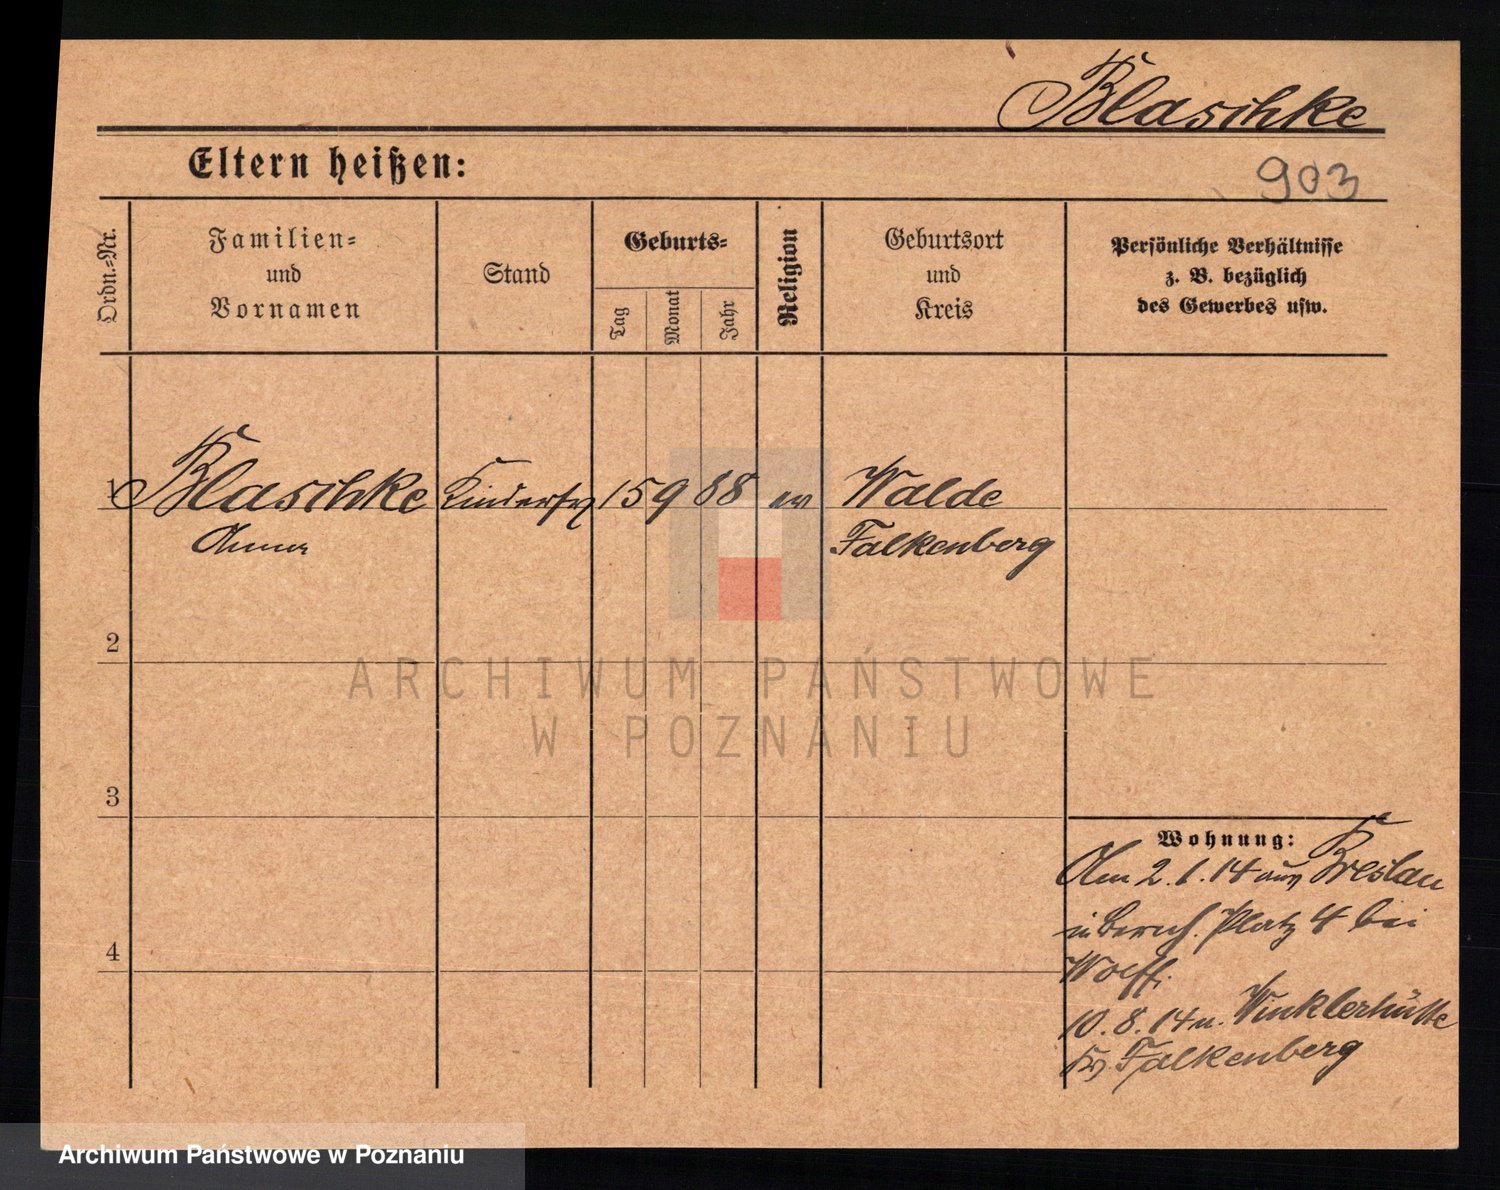 Blaschke
Eltern heißen:
903
Ordn.=Nr.
Familien=
und
Vornamen
Stand
Geburts=
Tag
Monat
Jahr
Religion
Geburtsort
und
Kreis
Persönliche Verhältnisse
z. B. bezüglich
des Gewerbes usw.
1 Blaschke 15 9 88 ev Walde
Anna Falkenberg
2
3
4
Wohnung:
Am 2.1.14 aus Breslau
Platz 4 bei
Wolff.
10.8.14 n. Winklerhütte
Kr. Falkenberg
ARCHIWUM PAŃSTWOWE
W POZNANIU
Archiwum Państwowe w Poznaniu